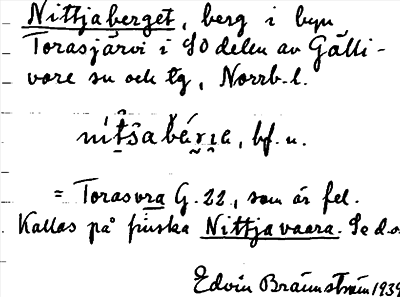 Nittjaberget, berg i byn
Torasjärvi i SO delen av Gälli-
vare sn och tg, Norrb. l.
bf. n.
= Torasvra G. 22, som är fel.
Kallas på finska Nittjavaara. Se d.o.
Edvin Brännström 1939